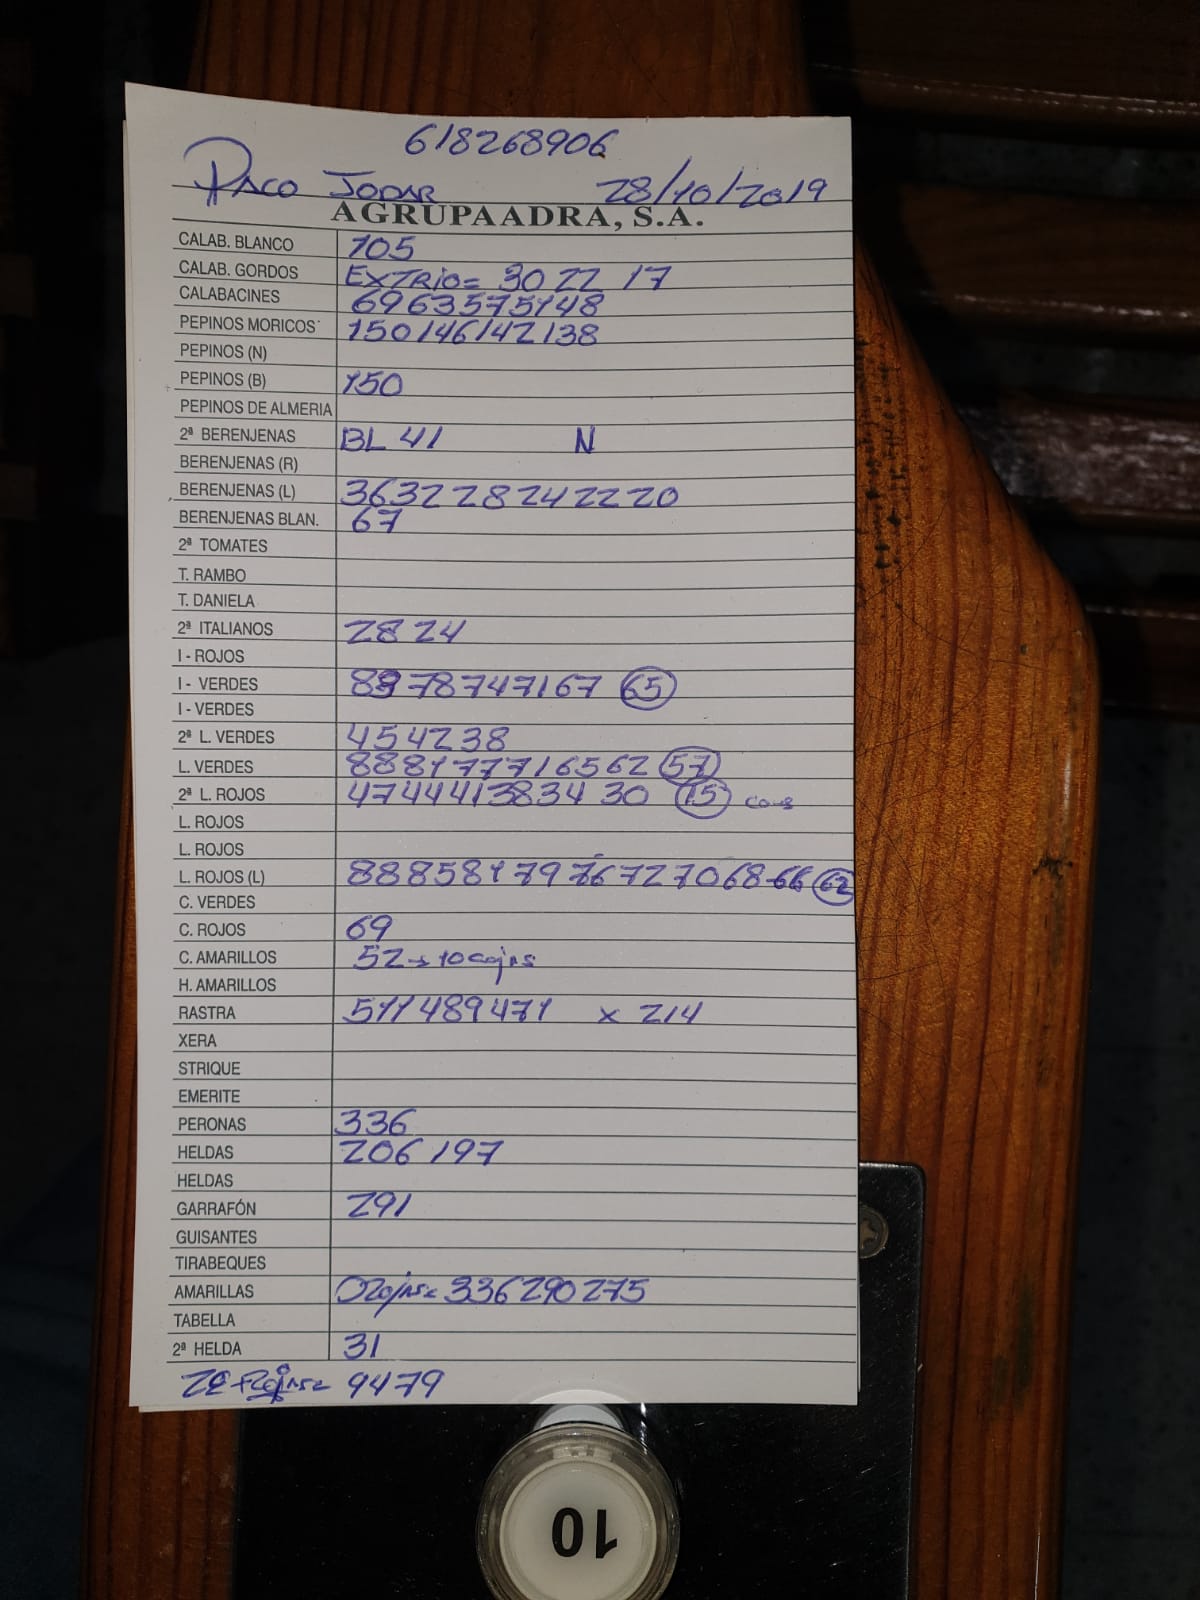 618268906
PACO JODAR 28/10/2019
AGRUPAADRA, S.A.
CALAB. BLANCO 105
CALAB. GORDOS EXTRIO= 30 22 17
CALABACINES 69 63 57 51 48
PEPINOS MORICOS 150 146 142 138
PEPINOS (N)
PEPINOS (B) 150
PEPINOS DE ALMERIA
2ª BERENJENAS BL 41 N
BERENJENAS (R)
BERENJENAS (L) 36 32 28 24 22 20
BERENJENAS BLAN. 67
2ª TOMATES
T. RAMBO
T. DANIELA
2ª ITALIANOS 28 24
I - ROJOS
I - VERDES 78 74 71 67 65
I - VERDES
2ª L. VERDES 45 42 38
L. VERDES 88 81 77 71 65 62 57
2ª L. ROJOS 47 44 41 38 34 30 15
L. ROJOS
L. ROJOS
L. ROJOS (L) 88 85 81 79 76 72 70 68 66 62
C. VERDES
C. ROJOS 69
C. AMARILLOS 52 → 10 cajas
H. AMARILLOS
RASTRA 511 489 471 x 214
XERA
STRIQUE
EMERITE
PERONAS 336
HELDAS 206 197
HELDAS
GARRAFÓN 291
GUISANTES
TIRABEQUES
AMARILLAS 336 290 275
TABELLA
2ª HELDA 31
94 79
10